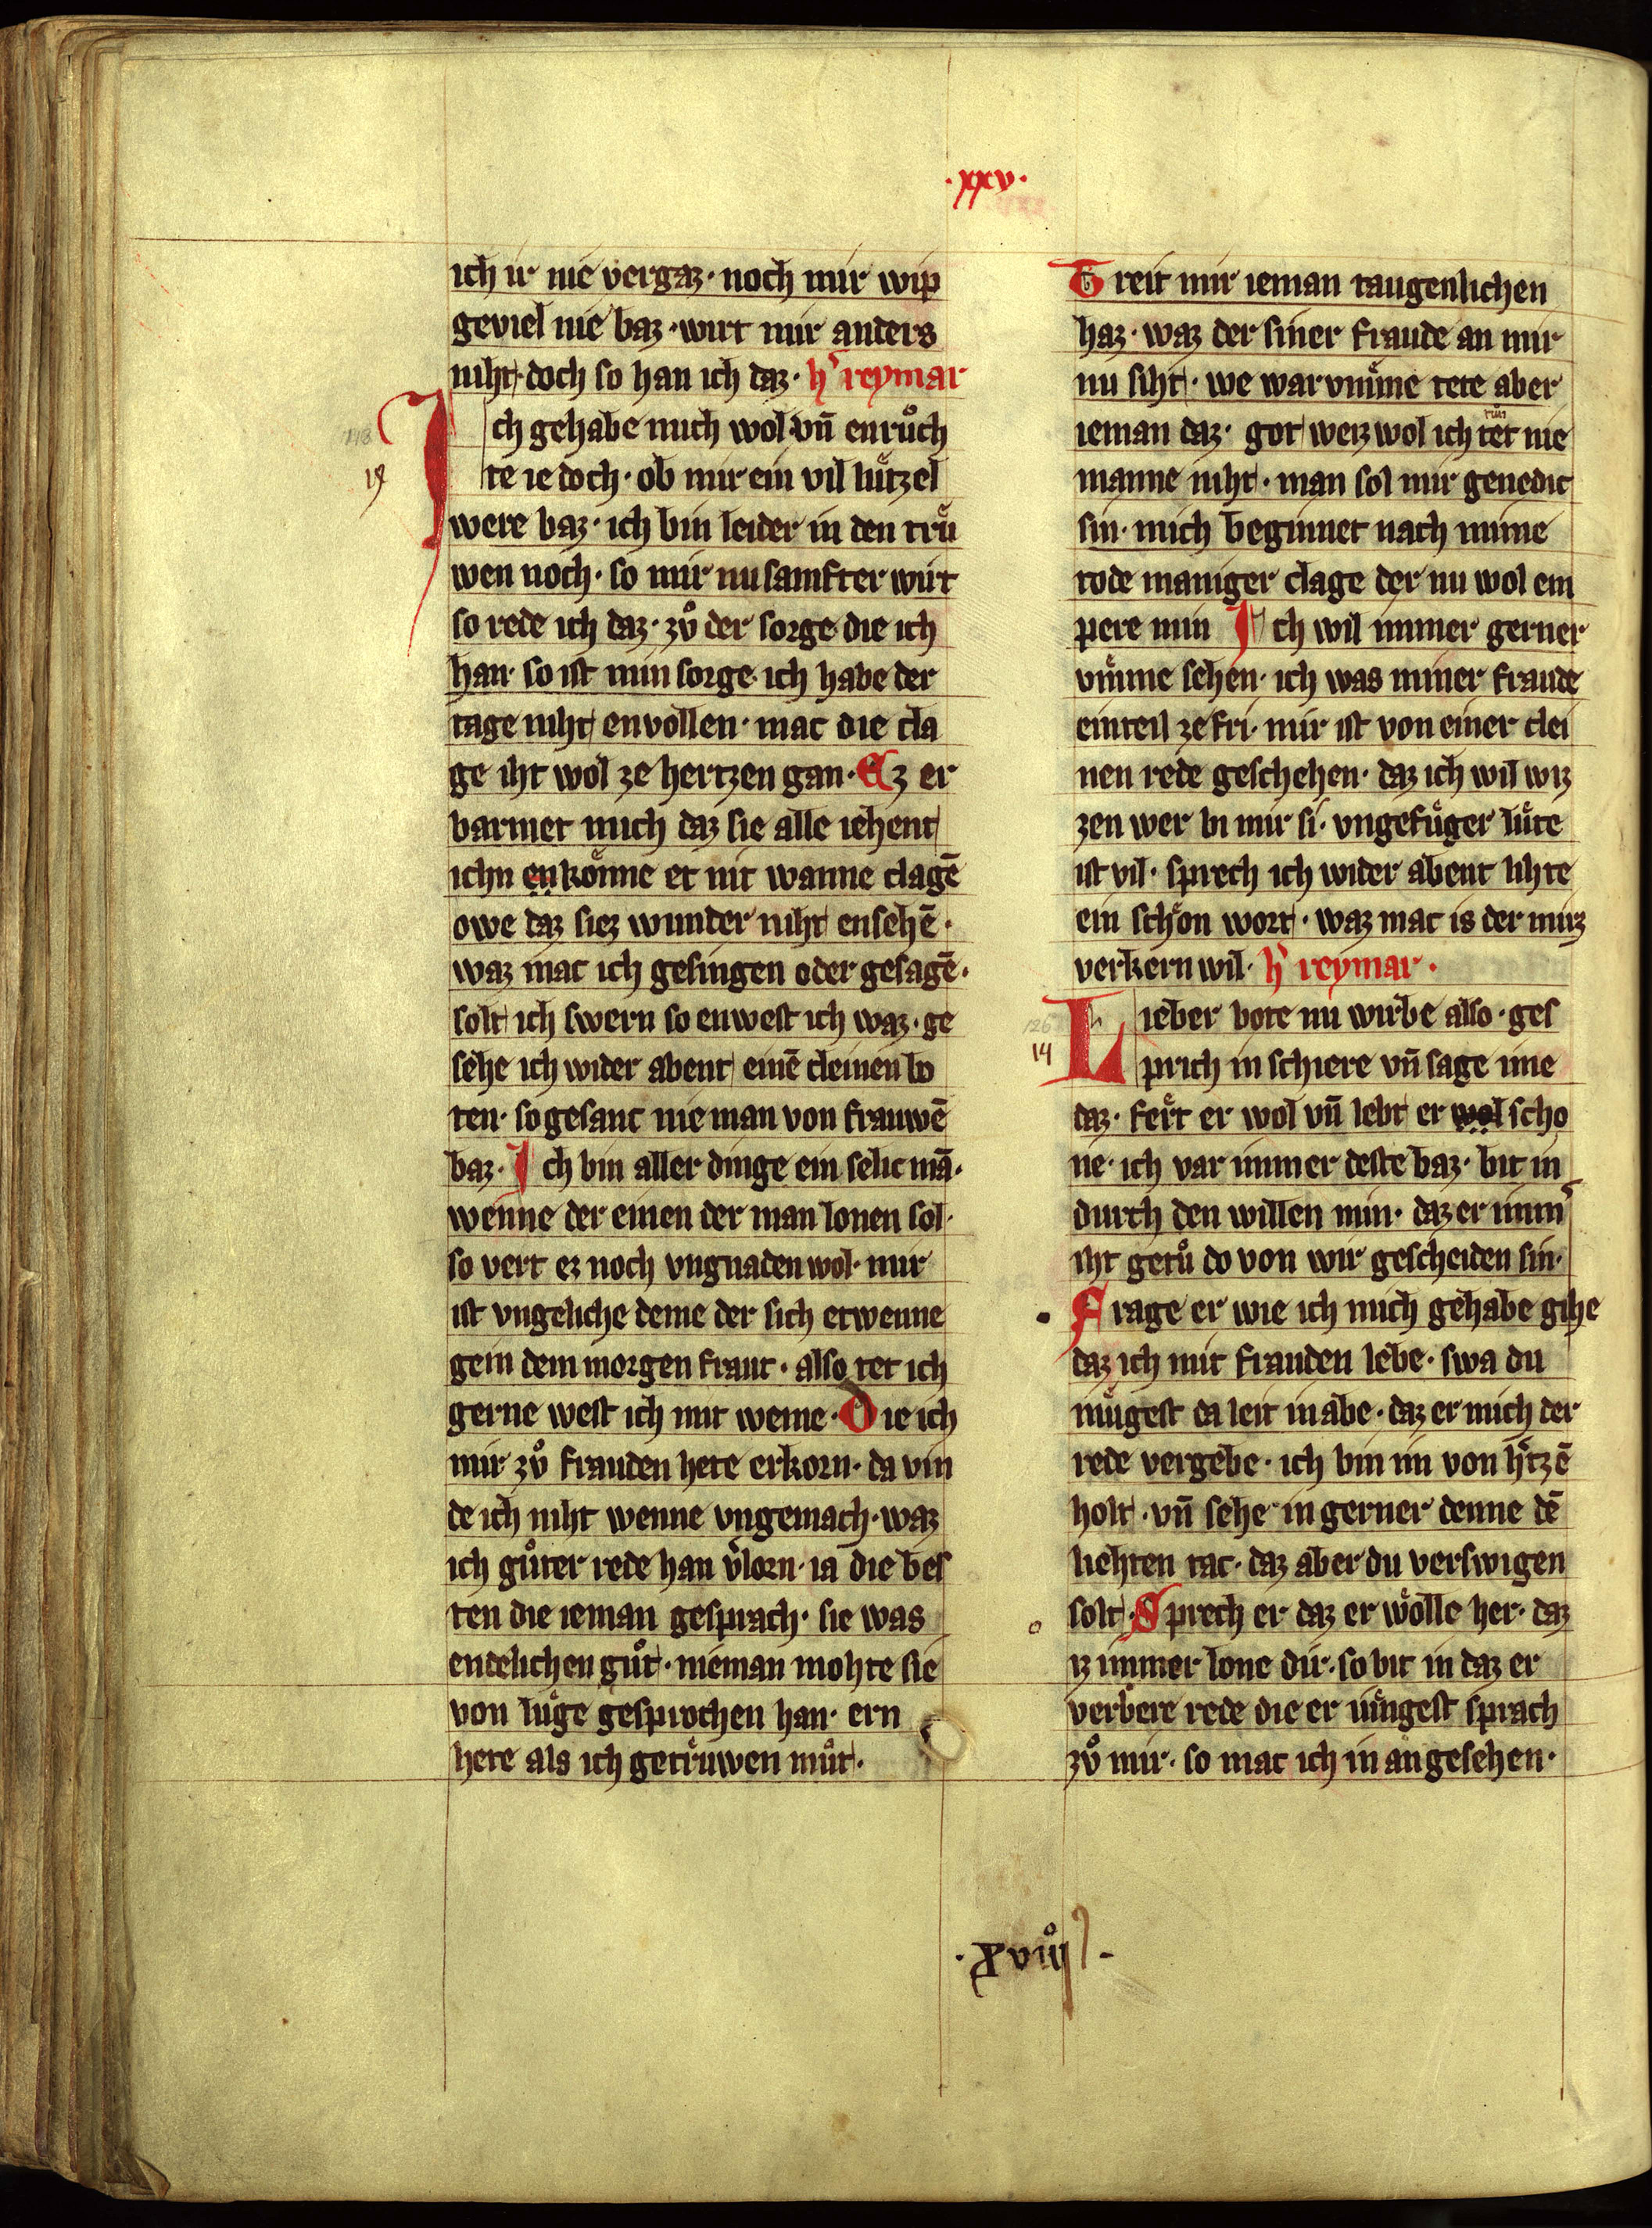 ·xxv·
ich ir nie vergaz · noch mir wip
geviel nie baz · wirt mir anders
niht · doch so han ich daz · h᷎ reymar
Ich gehabe mich wol vn̄ enruͦch
te ie doch · ob mir ein vil luͤtzel
were baz · ich bin leider in den truͤ
wen noch · so mir nu samfter wirt
so rede ich daz · zuͦ der sorge die ich
han · so ist min sorge · ich habe der
tage niht envollen · mac die cla
ge iht wol ze hertzen gan · Ez er
barmet mich daz sie alle iehent
ichn enkoͤnne et nit wanne clagē
owe daz siez wunder niht ensehē ·
waz mac ich gesingen oder gesagē ·
solt ich swern so enwest ich waz · ge
sehe ich wider abent einē cleinen bo
ten · so gesanc nie man von frauwē
baz · Ich bin aller dinge ein selic mā ·
wenne der einen der man lonen sol ·
so vert ez noch vngnaden wol · mir
ist vngeliche deme der sich etwenne
gein dem morgen fraut · also tet ich
gerne west ich mit weme · Die ich
mir zuͦ frauden hete erkorn · da vin
de ich niht wenne vngemach · waz
ich guͦter rede han v᷎lorn · ia die bes
ten die ieman gesprach · sie was
endelichen guͦt · nieman mohte sie
von luͤge gesprochen han · ern
hete als ich getruͤwen muͦt ·
Treit mir ieman taugenlichen
haz · waz der siner fraude an mir
nu siht · we war vmͤme tete aber
ieman daz · got weiz wol ich tet nie
manne niht · man sol mir genedic
sin · mich beginnet nach mime
tode maniger clage der nu wol em
pere min Ich wil immer gerner
vmͤme sehen · ich was miner fraude
ein teil ze fri · mir ist von einer clei
nen rede geschehen · daz ich wil wiz
zen wer bi mir si · vngefuͤger luͤte
ist vil · sprech ich wider abent lihte
ein schoͤn wort · waz mac is der mirz
verkern wil · h᷎ reymar ·
Lieber bote nu wirbe also · ges
prich in schiere vn̄ sage ime
daz · fert er wol vn̄ lebt er wol scho
ne · ich var immer deste baz · bit in
durch den willen min · daz er imm᷎
iht getuͦ do von wir gescheiden sin ·
Frage er wie ich mich gehabe gihe
daz ich mit frauden lebe · swa du
muͤgest da leit in abe · daz er mich der
rede vergebe · ich bin im von h᷎tzē
holt · vn̄ sehe in gerner denne dē
liehten tac · daz aber du verswigen
solt · Sprech er daz er woͤlle her · daz
iz immer lone dir · so bit in daz er
verbere rede die er iuͤngest sprach
zuͦ mir · so mac ich in an gesehen ·
14
· xviiͦj ·